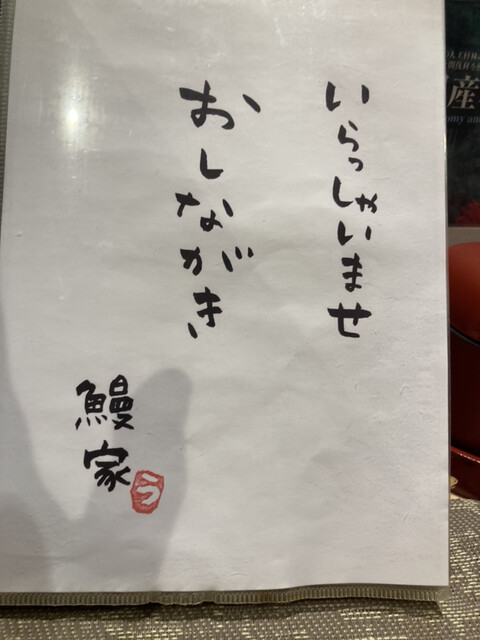 いらっしゃいませ
おしながき
鰻家
う
産
omy an